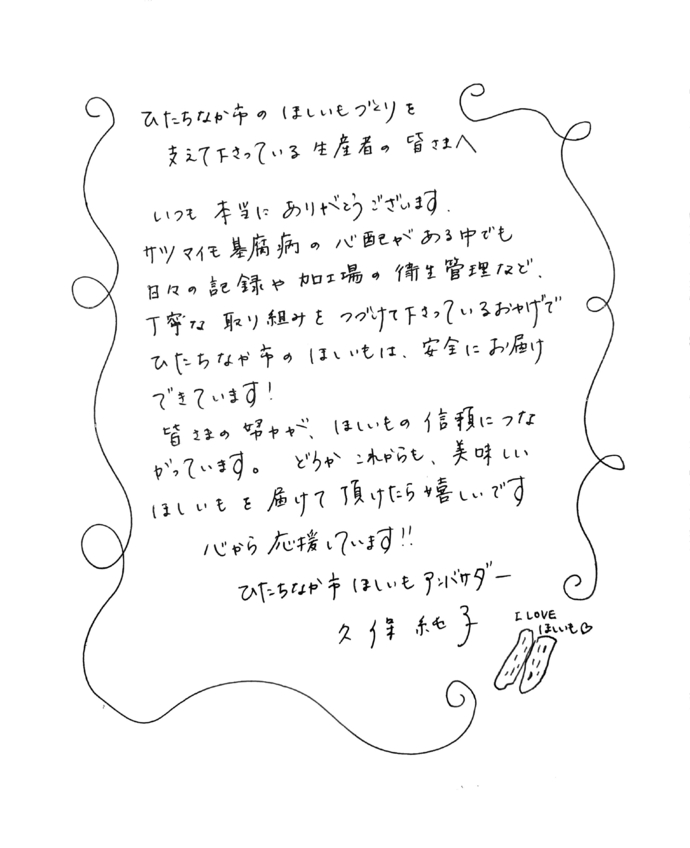 ひたちなか市の ほしいもづくりを
支えて下さっている 生産者の 皆さまへ
いつも 本当に ありがとうございます.
サツマイモ基腐病の 心配が ある中でも
日々の 記録や 加工場の 衛生管理など、
丁寧な 取り組みを つづけて下さっているおかげで
ひたちなか市の ほしいもは、安全に お届け
できています!
皆さまの 努力が、ほしいもの 信頼につな
がっています。 どうか これからも、美味しい
ほしいもを 届けて 頂けたら嬉しいです
心から 応援しています!!
ひたちなか市 ほしいも アンバサダー
久保 純子
I LOVE
ほしいも♡